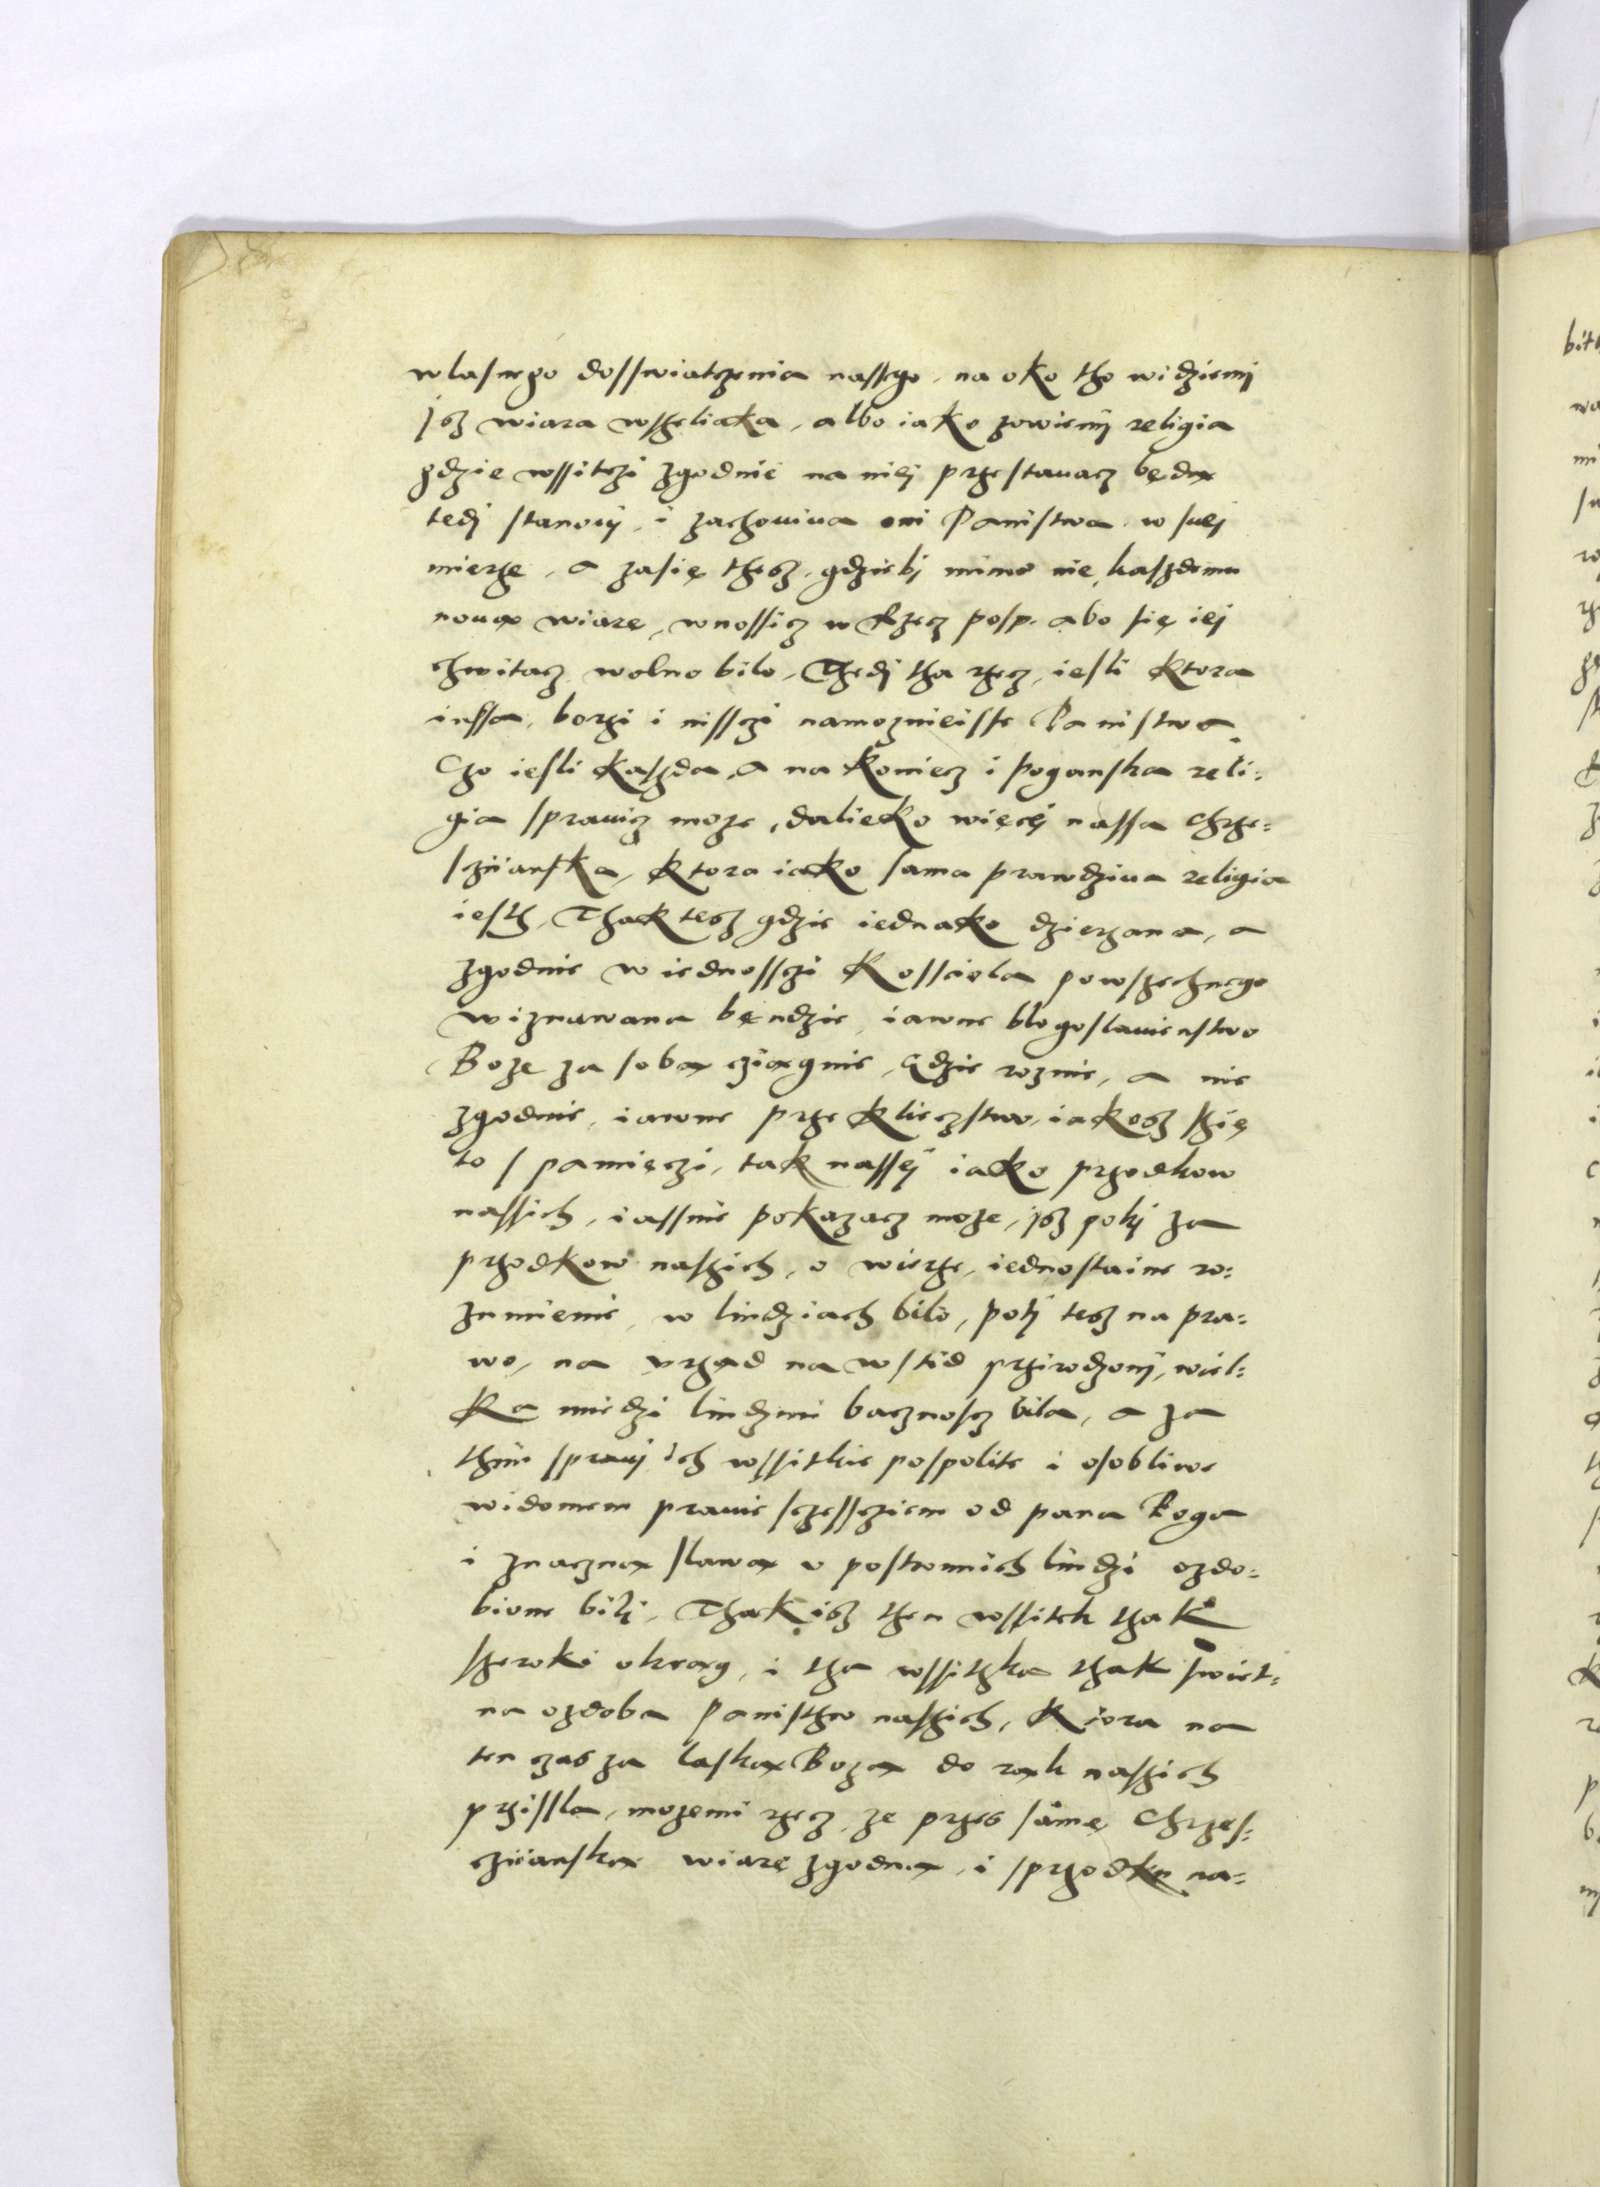 wlasnego dosswiatczenia nassego, na oko tho widziemÿ
Jsz wiara wszeliaka, albo iako zowiemÿ religia
gdzie wssitczi zgodnie na nieÿ przestavacz będą
tedÿ stanovÿ, i zachoviva oni Panistwa, w sveÿ
mierze, a zasię thesz, gdziebÿ mimo nie, kaszdemu
novą wiarę, wnossicz w Rzecz posp. abo się ieÿ
chwitacz wolno bilo, Thedÿ tha rzecz, iesli ktora
inssa, borzi i nissczi namoznieisse Panistwa.
Czo iesli kaszda, a na koniecz i poganska reli-
gia spravicz moze, dalieko więcéÿ nassa chrze-
scziianska, ktora iako sama prawdziva religia
iesth, Thak tesz gdzie iednako dzierzana, a
zgodnie w iednossczi Kossciola powszechnego
wiznawana będzie, iawne blogoslavienstwo
Boze za sobą cziągnie, Gdzie roznie, a nie
zgodnie, iawne przeklieczstwo, iakosz szię
to s pamięczi, tak nasseÿ iako przodkow
nassich, iassnie pokazacz moze, Jsz pokÿ za
przodkow naszich, o wierze, iednostaine ro-
zumienie, w liudziach bilo, potÿ tesz na pra-
wo, na urząd na wstid przirodzonÿ, wiel-
ka miedzi liudzmi bacznoscz bila, a za
thim spravÿ ich wssitkie pospolite i osobliwe
widomem pravie sczessciem od pana Boga
i znaczną slawą u postronnich liudzi ozdo-
bione bilÿ, Thak isz then wssitek thak
szeroki okrąg, i tha wssithka thak swiet-
na ozdoba Panisthw naszich, ktora na
ten czas za laską Bozą do rąk naszich
przissla, mozemi rzecz, ze przes samę Chrzes-
cziianską wiarę zgodną, i sprzodku na-